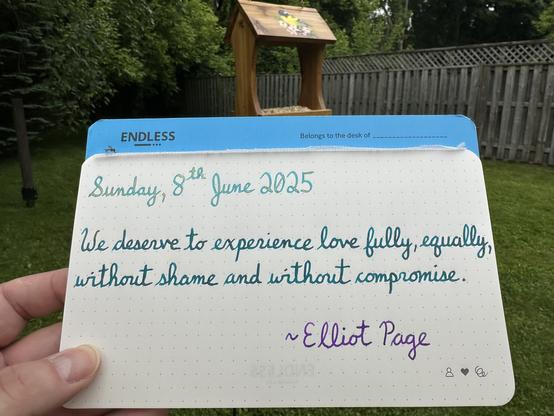 ENDLESS
Belongs to the desk of
Sunday, 8th June 2025
We deserve to experience love fully, equally,
without shame and without compromise.
~Elliot Page
ENDLESS